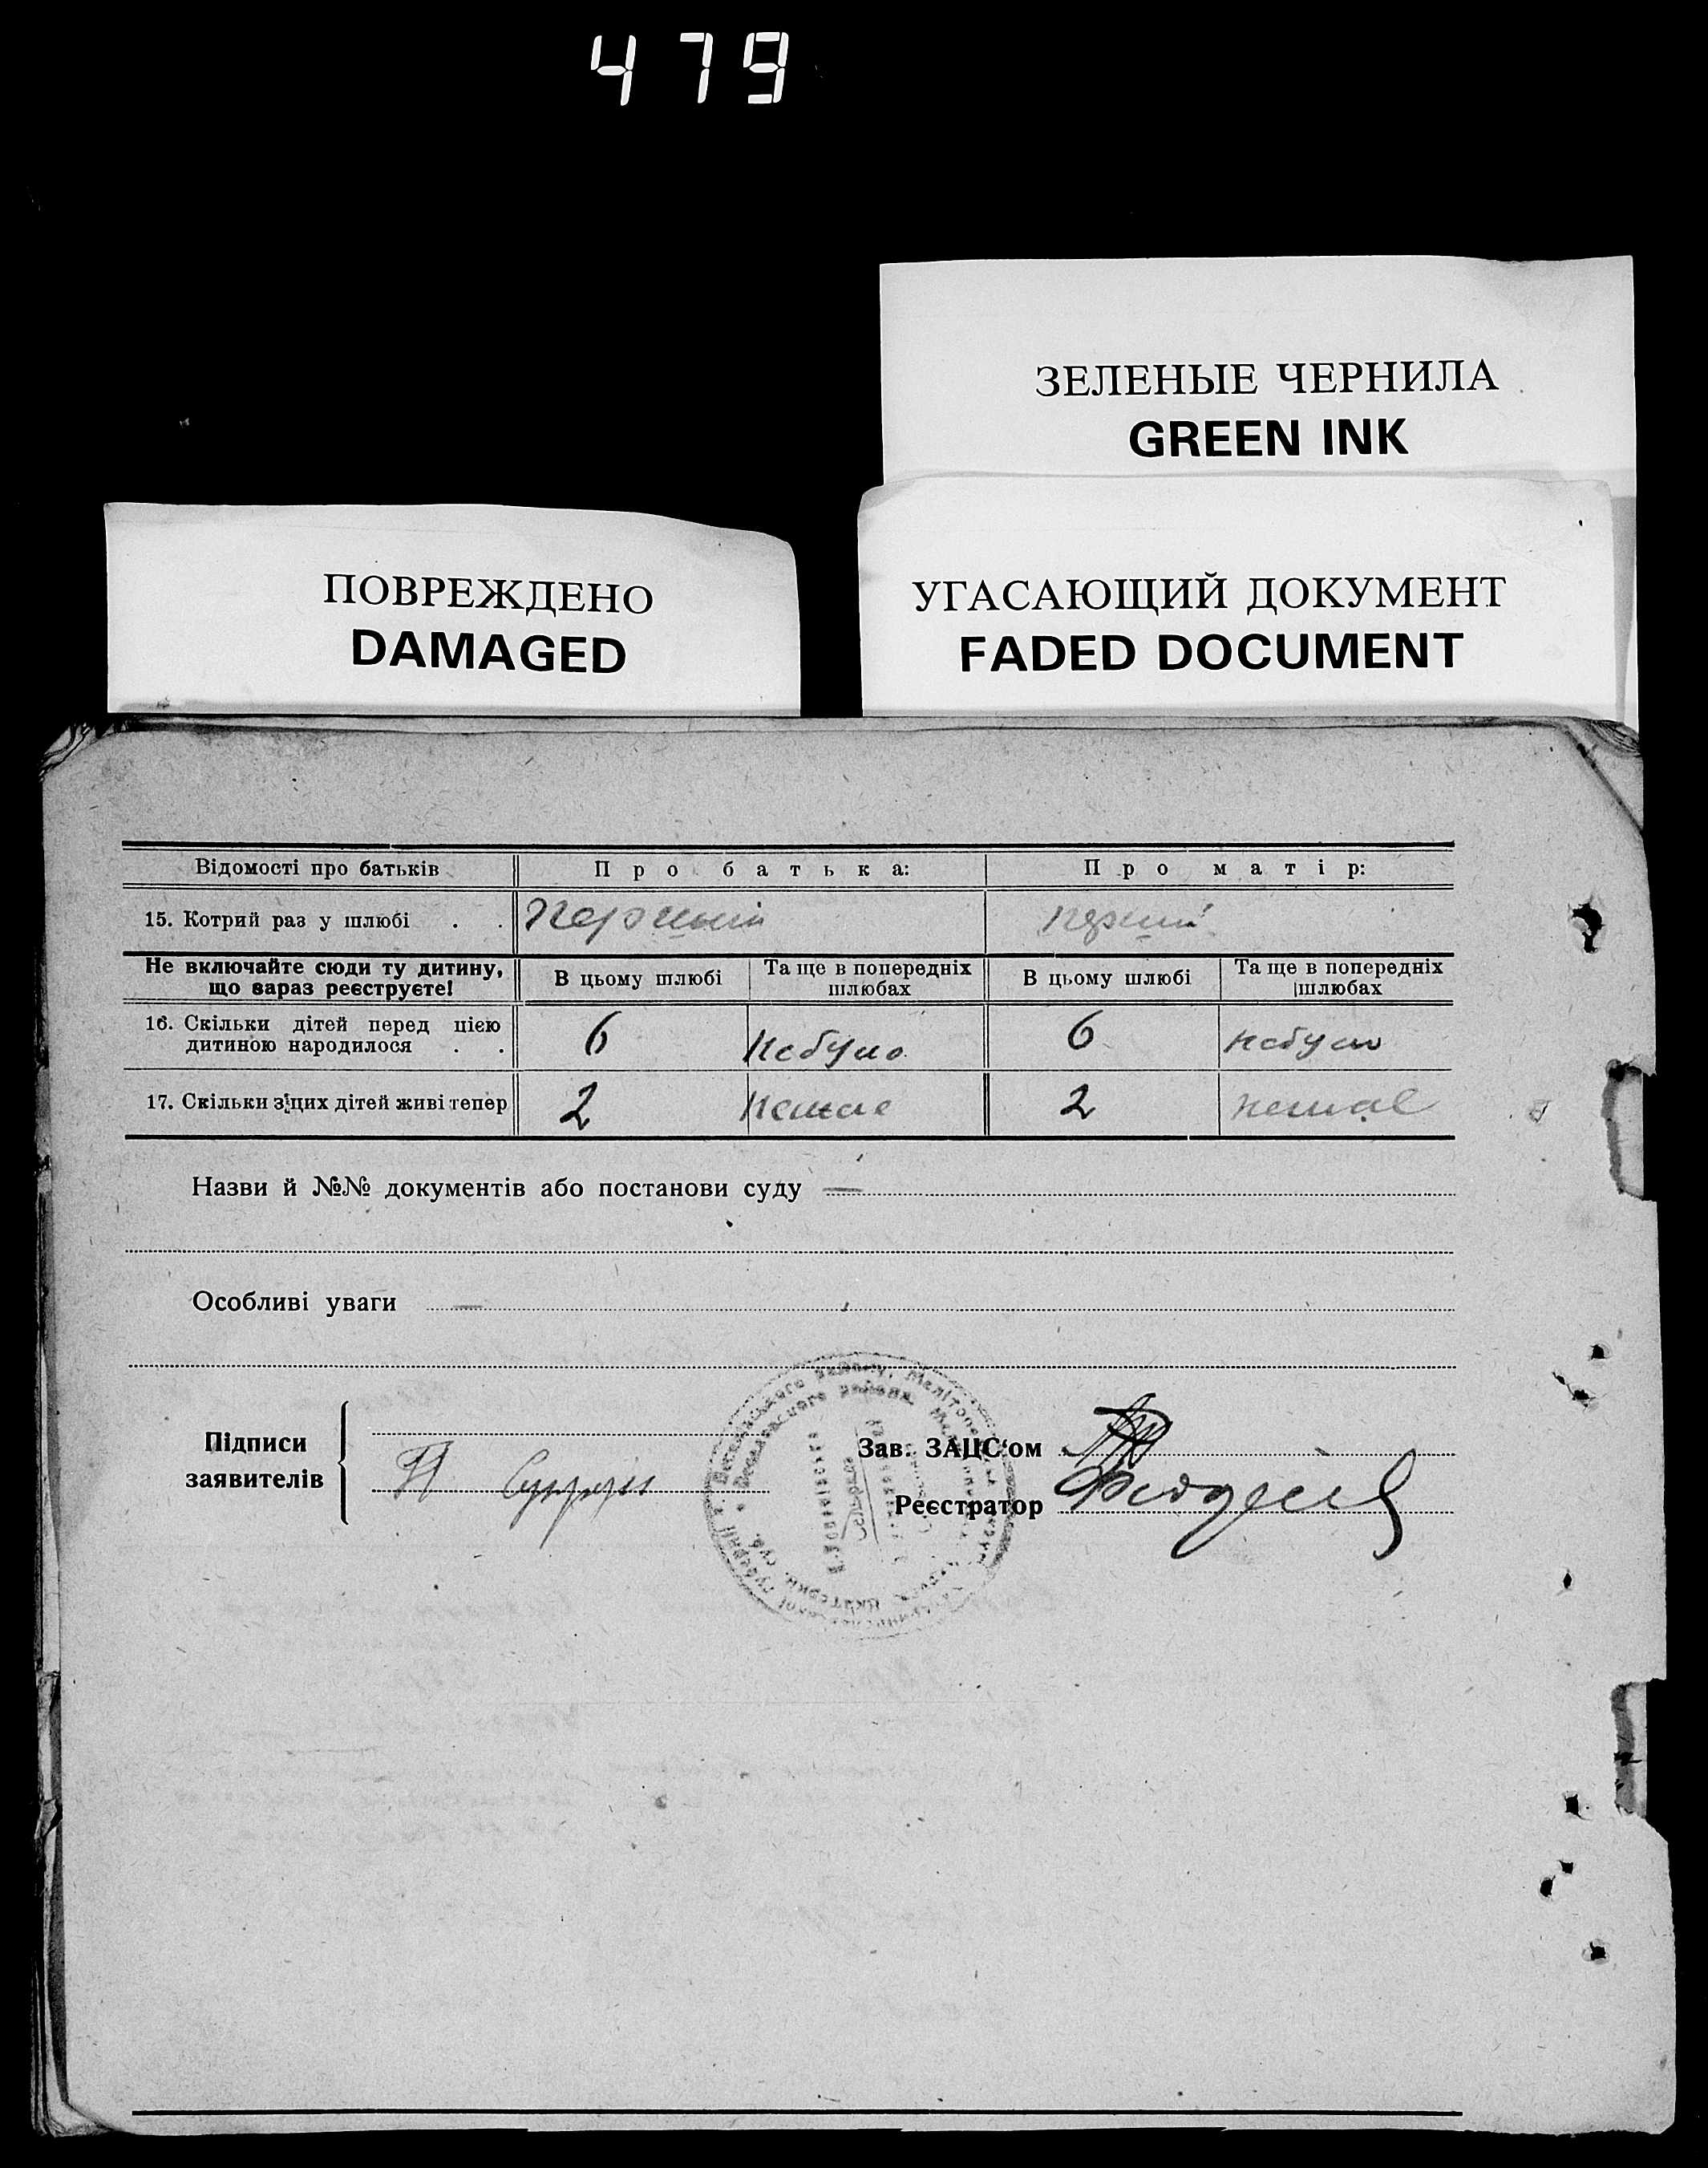 479
ЗЕЛЕНЫЕ ЧЕРНИЛА
GREEN INK
ПОВРЕЖДЕНО
DAMAGED
УГАСАЮЩИЙ ДОКУМЕНТ
FADED DOCUMENT
Відомості про батьків Про батька: Про матір:
15. Котрий раз у шлюбі . . перший перший
Не включайте сюди ту дитину, що вараз реєструєте! В цьому шлюбі Та ще в попередніх шлюбах В цьому шлюбі Та ще в попередніх шлюбах
16. Скільки дітей перед цією
дитиною народилося . . 6 небуло 6 небуло
17. Скільки з цих дітей живі тепер 2 немає 2 немає
Назви й №№ документів або постанови суду —
Особливі уваги —
Підписи
заявителів
Зав. ЗАЦС'ом
Реєстратор